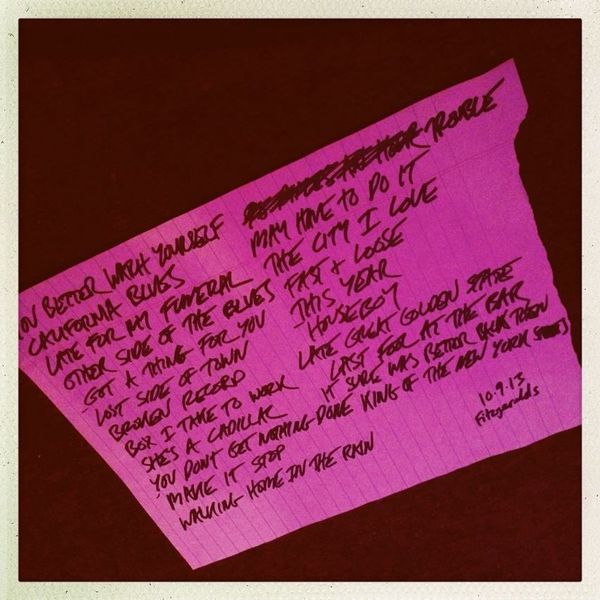 OU BETTER WATCH YOURSELF
CALIFORNIA BLUES
LATE FOR MY FUNERAL
OTHER SIDE OF THE BLUES
GOT A THING FOR YOU
LOST SIDE OF TOWN
BROKEN RECORD
BOX I TAKE TO WORK
SHE'S A CADILLAC
YOU DON'T GET NOTHING DONE
MAKE IT STOP
WALKING HOME IN THE RAIN
TROUBLE
MAY HAVE TO DO IT
THE CITY I LOVE
FAST & LOOSE
THIS YEAR
HOUSEBOY
LATE GREAT GOLDEN STATE
LAST FOOL AT THE BAR
IT SURE WAS BETTER BACK THEN
KING OF THE NEW YORK STREETS
10.9.13
Fitzgeralds